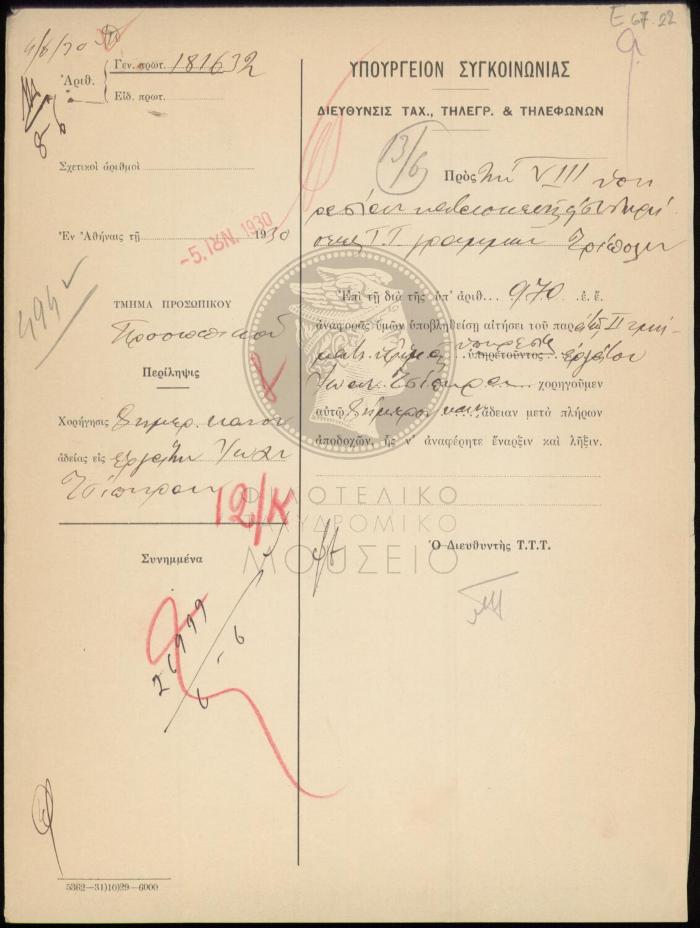 Ε 67.22
4/6/30
Ἀριθ.
Γεν. πρωτ. 181632
Εἰδ. πρωτ.
Σχετικοὶ ἀριθμοὶ
-5. ΙΟΥΝ. 1930
Ἐν Ἀθήναις τῇ 1930
494
ΤΜΗΜΑ ΠΡΟΣΩΠΙΚΟΥ
Προσωπικοῦ
Περίληψις
Χορήγησις 8ημερ. κανον
ἀδείας εἰς ἐργάτην Ἰωάν
Τσίπηραν
12/Κ
Συνημμένα
26999
6-6
5362—31)10)29—6000
ΥΠΟΥΡΓΕΙΟΝ ΣΥΓΚΟΙΝΩΝΙΑΣ
ΔΙΕΥΘΥΝΣΙΣ ΤΑΧ., ΤΗΛΕΓΡ. & ΤΗΛΕΦΩΝΩΝ
13/6
Πρὸς τὴν VIII Ὑπη
ρεσίαν κατασκευῆς & συντηρή
σεως Τ.Τ. γραμμῶν Τρίπολιν
Ἐπὶ τῇ διὰ τῆς ὑπ' ἀριθ. 970 ἐ. ἔ.
ἀναφορᾶς ὑμῶν ὑποβληθείσῃ αἰτήσει τοῦ παρὰ τῷ ΙΙ τμή
ματι ὑπηρετοῦντος ἐργάτου
Ἰωάν. Τσίπηρα χορηγοῦμεν
αὐτῷ 8ήμερον καν. ἄδειαν μετὰ πλήρων
ἀποδοχῶν, ἧς ν' ἀναφέρητε ἔναρξιν καὶ λῆξιν.
Ὁ Διευθυντὴς Τ.Τ.Τ.
ΦΙΛΟΤΕΛΙΚΟ
ΤΑΧΥΔΡΟΜΙΚΟ
ΜΟΥΣΕΙΟ